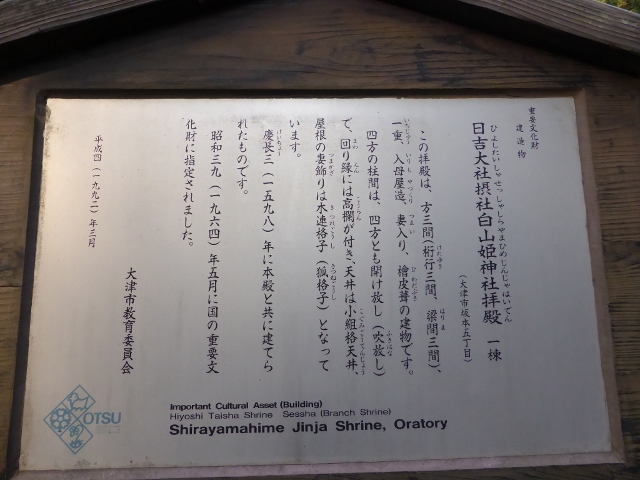 重要文化財
建造物
日吉大社摂社白山姫神社拝殿 一棟
ひよしたいしゃせっしゃしらやまひめじんじゃはいでん
(大津市坂本五丁目)
この拝殿は、方三間(桁行三間、梁間三間)、
一重、入母屋造、妻入り、檜皮葺の建物です。
四方の柱間は、四方とも開け放し(吹放し)
で、回り縁には高欄が付き、天井は小組格天井、
屋根の妻飾りは木連格子(狐格子)となって
います。
慶長三(一五九八)年に本殿と共に建てら
れたものです。
昭和三九(一九六四)年五月に国の重要文
化財に指定されました。
平成四(一九九二)年三月
大津市教育委員会
OTSU
Important Cultural Asset (Building)
Hiyoshi Taisha Shrine Sessha (Branch Shrine)
Shirayamahime Jinja Shrine, Oratory